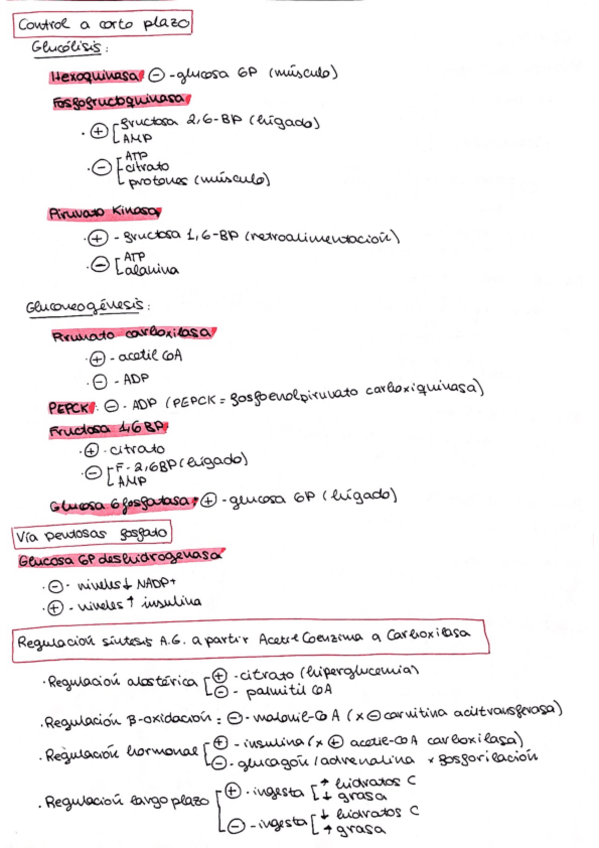 Control a corto plazo
Glucólisis:
Hexoquinasa ⊖ -glucosa 6P (músculo)
Fosfofructoquinasa
· ⊕ [ fructosa 2,6-BP (hígado)
AMP
· ⊖ [ ATP
citrato
protones (músculo)
Piruvato Kinasa
· ⊕ - fructosa 1,6-BP (retroalimentación)
· ⊖ [ ATP
alanina
Gluconeogénesis:
Piruvato carboxilasa
· ⊕ - acetil CoA
· ⊖ - ADP
PEPCK · ⊖ - ADP (PEPCK = fosfoenolpiruvato carboxiquinasa)
Fructosa 1,6BP
· ⊕ - citrato
· ⊖ [ F-2,6BP (hígado)
AMP
Glucosa 6fosfatasa: ⊕ - glucosa 6P (hígado)
Vía pentosas fosfato
Glucosa 6P deshidrogenasa
· ⊖ - niveles ↓ NADP+
· ⊕ - niveles ↑ insulina
Regulación síntesis A.G. a partir Acetil Coenzima a Carboxilasa
· Regulación alostérica [ ⊕ - citrato (hiperglucemia)
⊖ - palmitil CoA
· Regulación β-oxidación = ⊖ - malonil-CoA (x ⊖ carnitina aciltransferasa)
· Regulación hormonal [ ⊕ - insulina (x ⊕ acetil-CoA carboxilasa)
⊖ - glucagón/adrenalina x fosforilación
· Regulación largo plazo [ ⊕ - ingesta [ ↑ hidratos C
↓ grasa
⊖ - ingesta [ ↓ hidratos C
↑ grasa